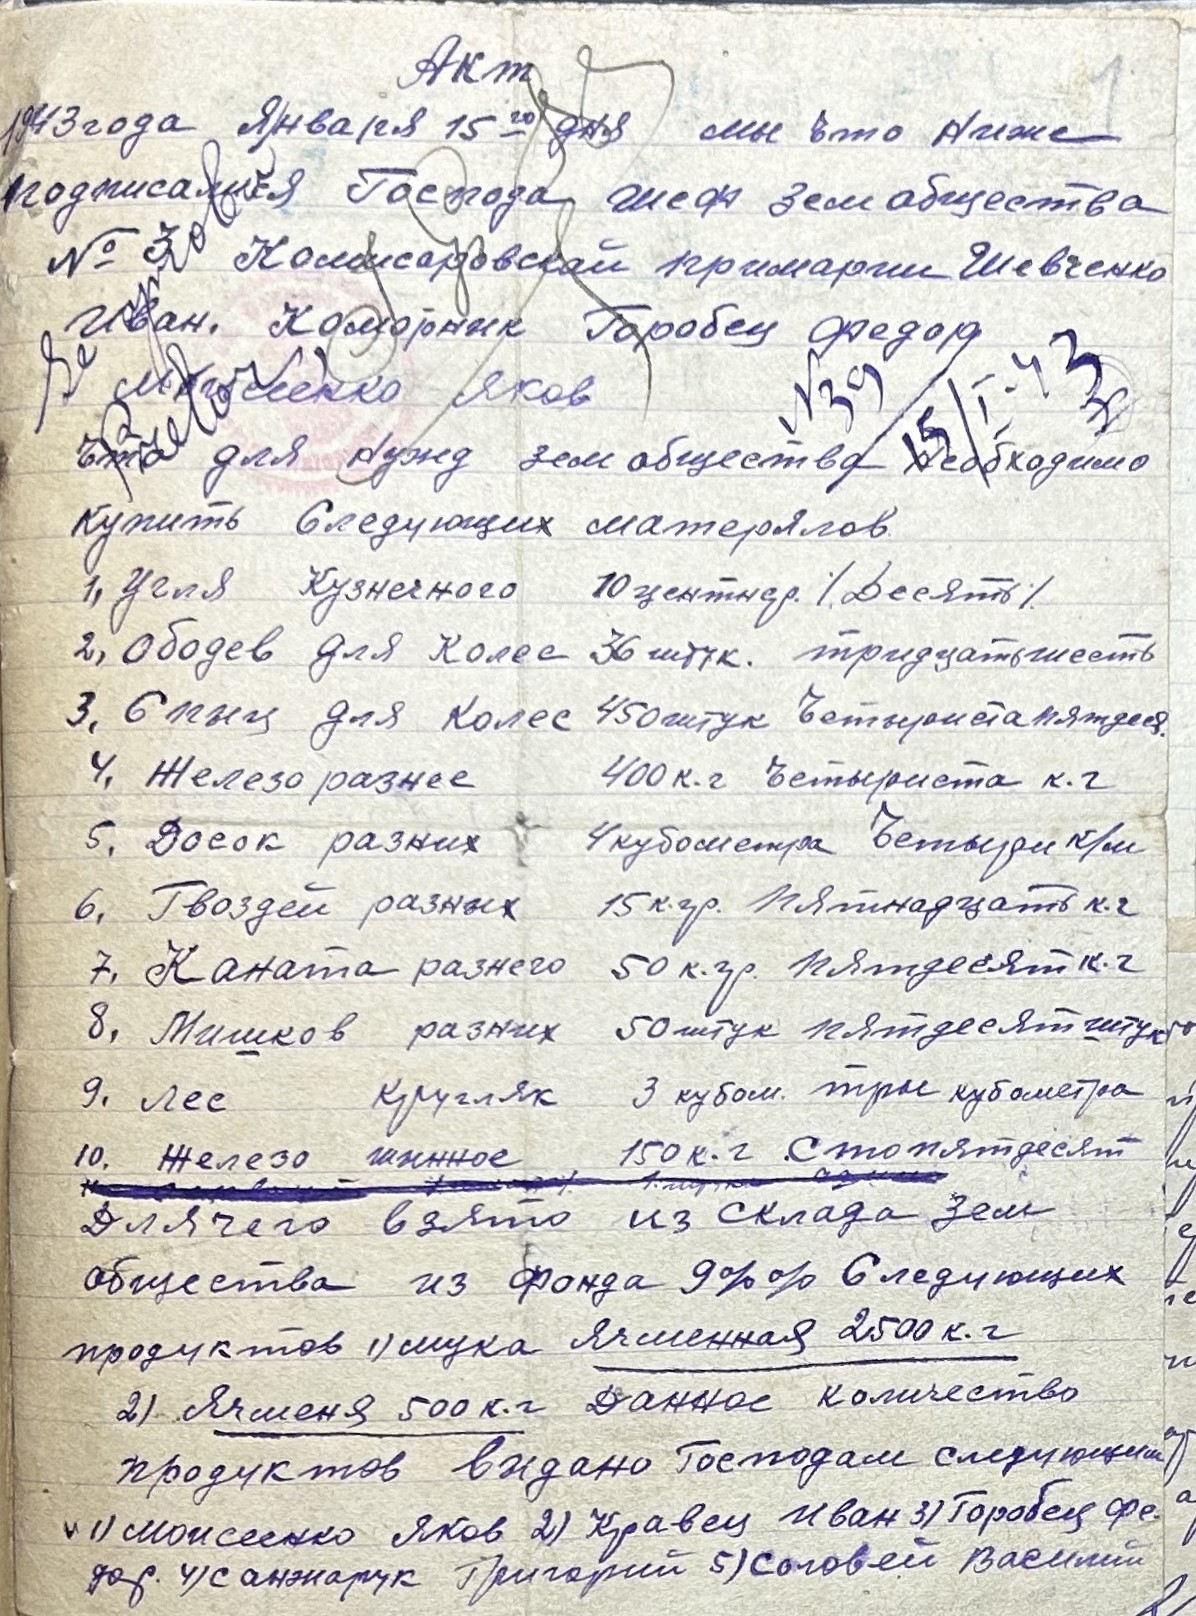 Акт
1
1943 года Января 15 го дня мы что ниже
подписалися Господа шеф земобщества
№ 3 Комисаровской примарии Шевченко
Иван. Коморник Горобец Федор
Моисеенко Яков
N 39 15/I-43
Что для нужд земобщества необходимо
купить Следующих матерялов
1, Угля Кузнечного 10 центнер. /. Десять /.
2, Ободев для Колес 36 штук. тридцатьшесть
3, Спиц для Колес 450 штук Четыриста пятдеся.
4, Железо разнее 400 к.г Четыриста к.г
5, Досок разних 4 кубометра Четыри к/м
6, Гвоздей разних 15 к.гр. Пятнадцать к.г
7, Каната разнего 50 к.гр. Пятдесят к.г
8, Мишков разних 50 штук пятдесят штук
9. Лес Кругляк 3 кубом. три кубометра
10. Железо шинное 150 к.г Стопятдесят
Для чего взято из склада Зем
общества из фонда 9%% Следующих
продуктов 1) мука Ячменная 2500 к.г
2) Ячменя 500 к.г Данное количество
продуктов видано Господам следующим
v 1) Моисеенко Яков 2) Кравец Иван 3) Горобец Фе-
дор. 4) Санжарук Григорий 5) Соловей Василий